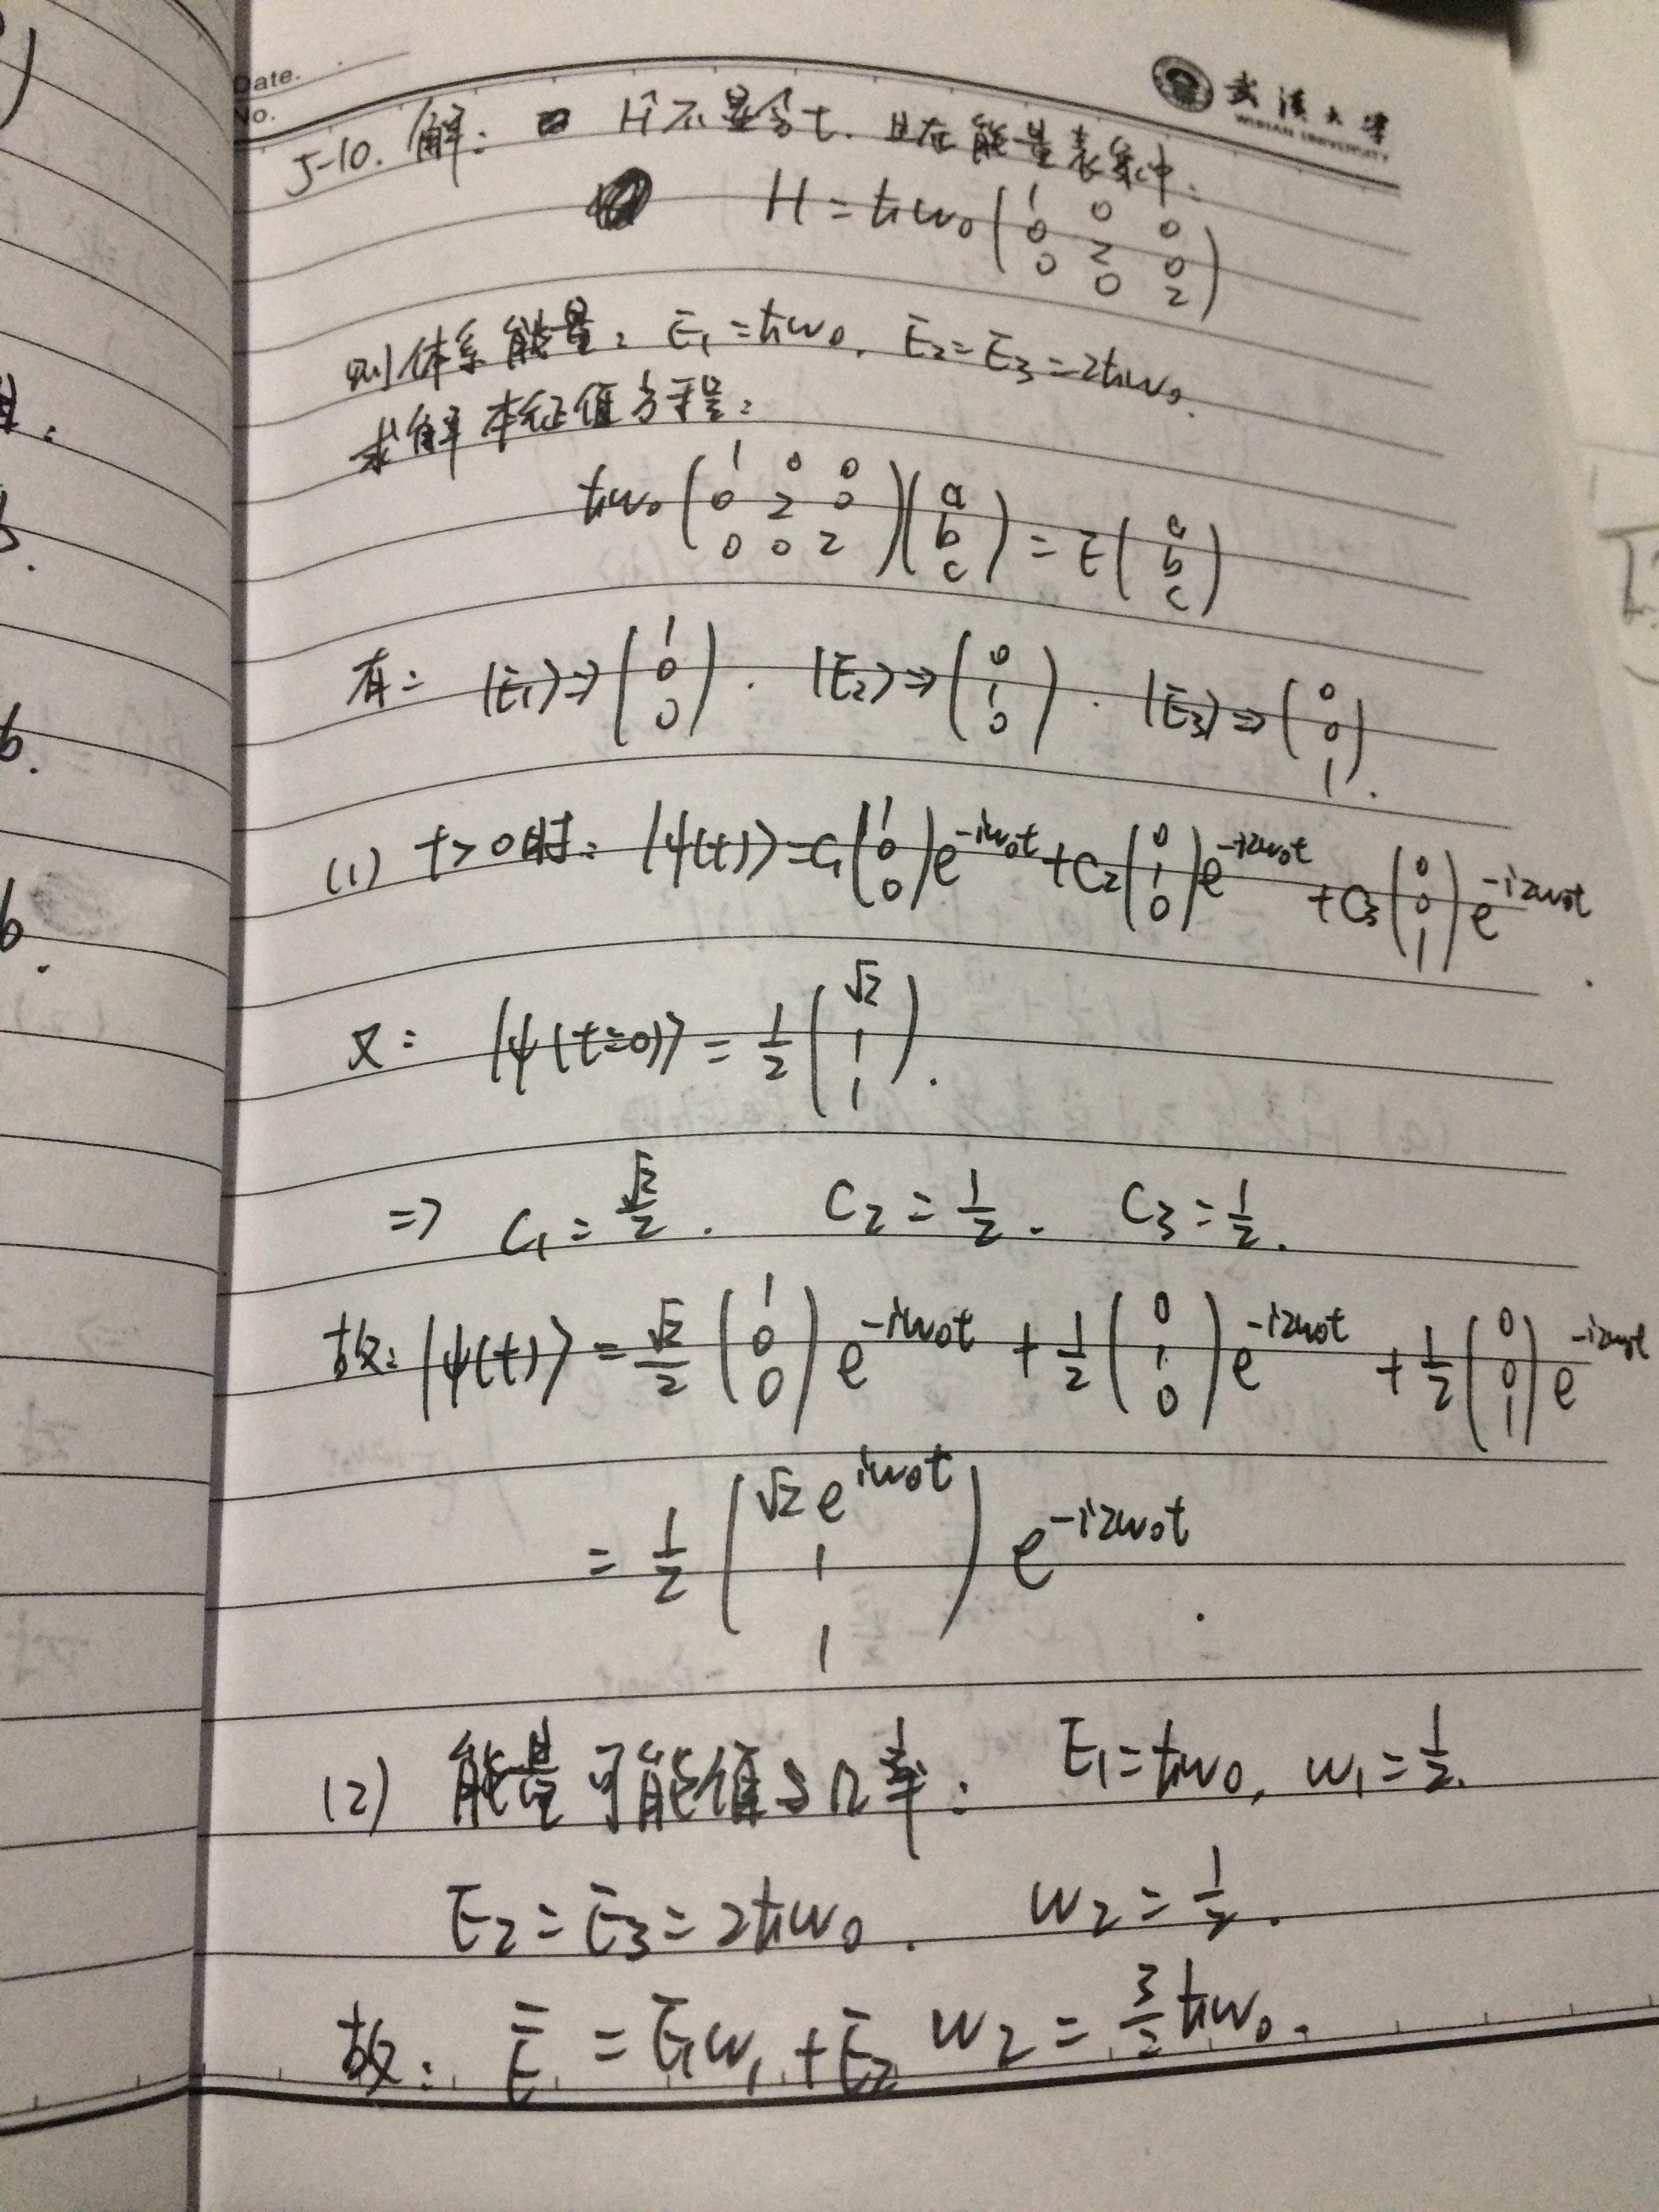 Date.
No.
武汉大学
WUHAN UNIVERSITY
5-10. 解: Ĥ不显含t. 且在能量表象中:
H = ħω₀ ( 1 0 0
0 2 0
0 0 2 )
则体系能量: E₁=ħω₀, E₂=E₃=2ħω₀.
求解本征值方程:
ħω₀ ( 1 0 0
0 2 0
0 0 2 ) ( a
b
c ) = E ( a
b
c )
有: |E₁⟩⇒( 1
0
0 ). |E₂⟩⇒( 0
1
0 ). |E₃⟩⇒( 0
0
1 ).
(1) t>0时: |ψ(t)⟩=C₁( 1
0
0 )e^{-iω₀t}+C₂( 0
1
0 )e^{-i2ω₀t}+C₃( 0
0
1 )e^{-i2ω₀t}.
又: |ψ(t=0)⟩ = 1/2 ( √2
1
1 ).
⇒ C₁=√2/2. C₂=1/2. C₃=1/2.
故: |ψ(t)⟩=√2/2 ( 1
0
0 ) e^{-iω₀t} + 1/2 ( 0
1
0 ) e^{-i2ω₀t} + 1/2 ( 0
0
1 ) e^{-i2ω₀t}
= 1/2 ( √2 e^{iω₀t}
1
1 ) e^{-i2ω₀t}.
(2) 能量可能值与几率: E₁=ħω₀, w₁=1/2.
E₂=E₃=2ħω₀. w₂=1/2.
故: Ē = E₁w₁+E₂w₂=3/2ħω₀.